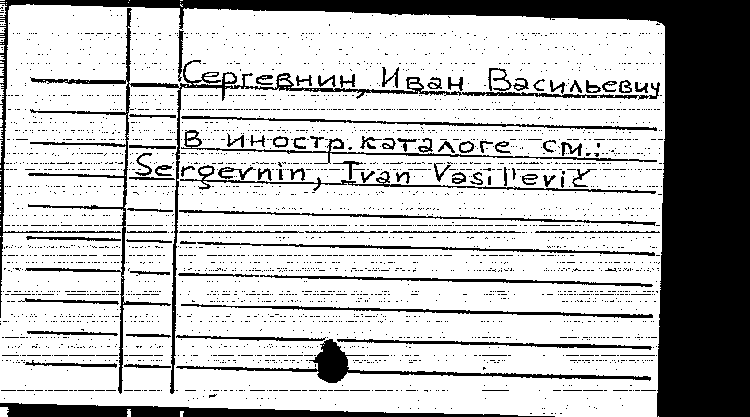 Сергевнин, Иван Васильевич
в иностр. каталоге см.:
Sergevnin, Ivan Vasil'evič